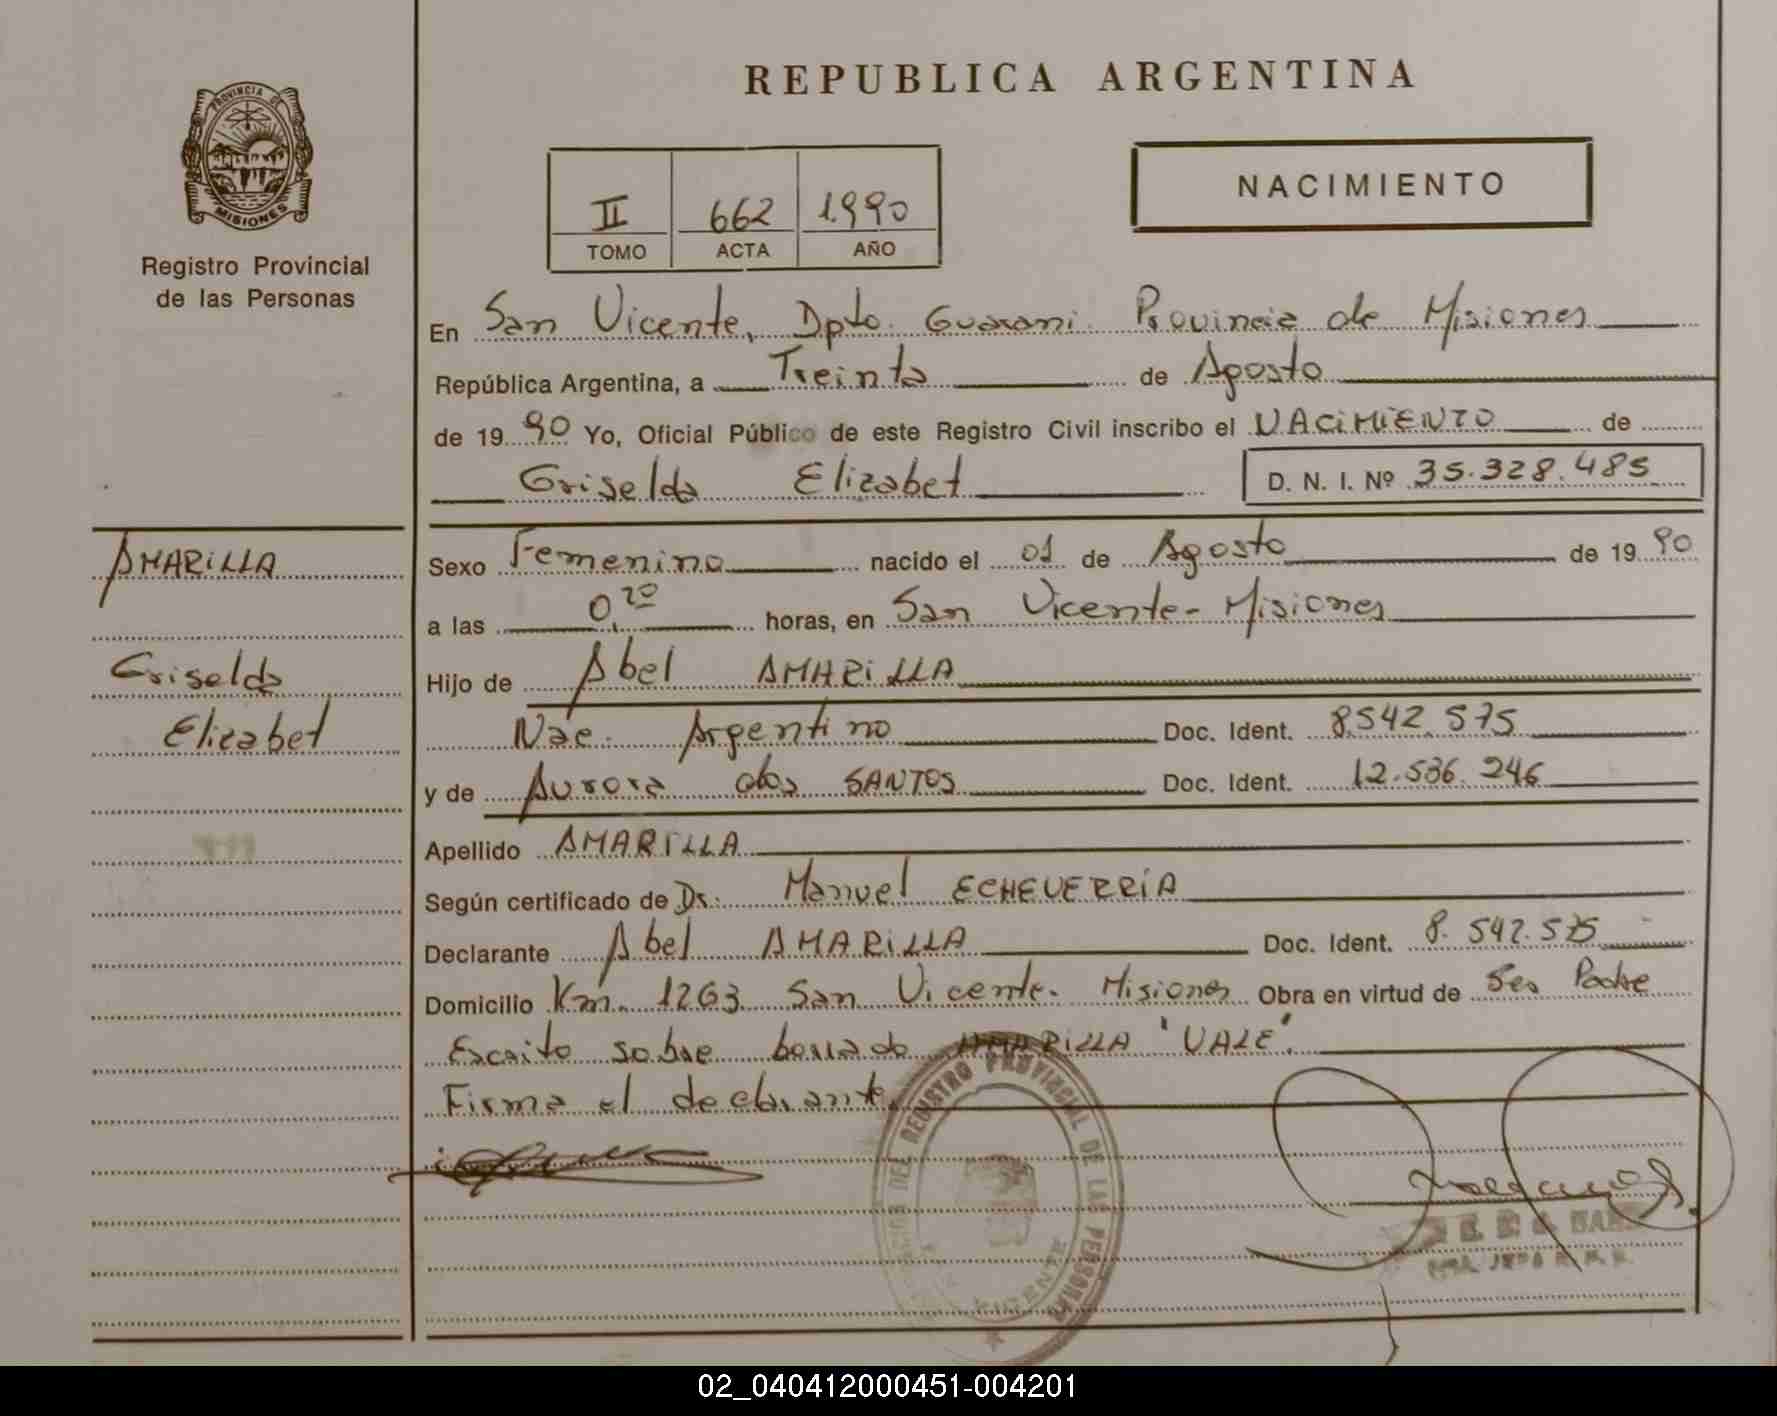 PROVINCIA DE
MISIONES
Registro Provincial
de las Personas
REPUBLICA ARGENTINA
II 662 1.990
TOMO ACTA AÑO
NACIMIENTO
En San Vicente, Dpto. Guarani. Provincia de Misiones
República Argentina, a Treinta de Agosto
de 19 90 Yo, Oficial Público de este Registro Civil inscribo el NACIMIENTO de
Griselda Elizabet D. N. I. Nº 35.328.485
AMARILLA
Griselda
Elizabet
Sexo Femenino nacido el 01 de Agosto de 19 90
a las 0,20 horas, en San Vicente - Misiones
Hijo de Abel AMARILLA
Nac. Argentino Doc. Ident. 8.542.575
y de Aurora dos SANTOS Doc. Ident. 12.536.246
Apellido AMARILLA
Según certificado de Dr. Manuel ECHEVERRÍA
Declarante Abel AMARILLA Doc. Ident. 8.542.575
Domicilio Km. 1263 San Vicente. Misiones Obra en virtud de Ser Padre
Escrito sobre borrado AMARILLA "VALE".
Firma el declarante.
DEL REGISTRO PROVINCIAL DE LAS PERSONAS
VICENTE
02_040412000451-004201